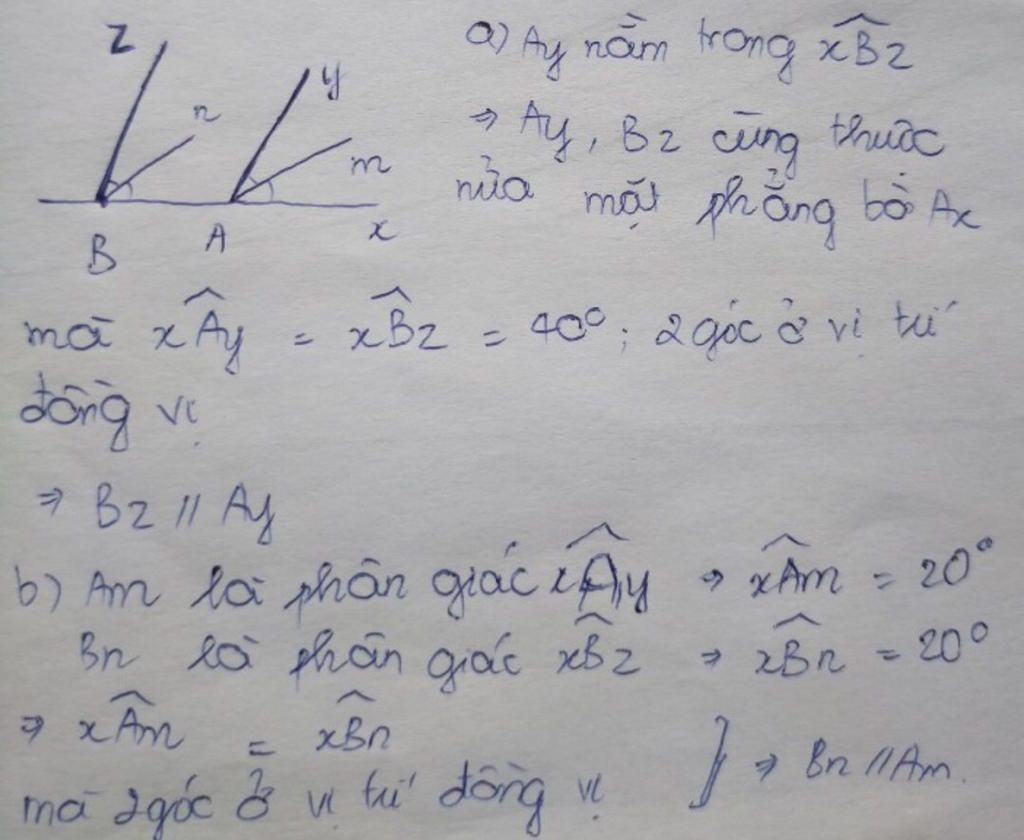 z
y
n
m
B
A
x
a) Ay nằm trong x̂Bz
⇒ Ay, Bz cùng thuộc
nửa mặt phẳng bờ Ax
mà xÂy = xB̂z = 40°; 2 góc ở vị trí
đồng vị
⇒ Bz // Ay
b) Am là phân giác xÂy ⇒ xÂm = 20°
Bn là phân giác xB̂z ⇒ xB̂n = 20°
⇒ xÂm = xB̂n
mà 2 góc ở vị trí đồng vị } ⇒ Bn // Am.